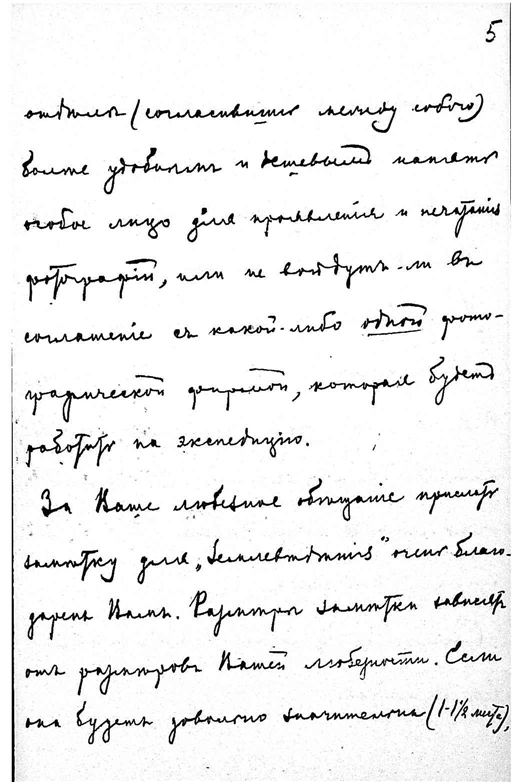 5
отдѣлъ (согласившись между собою)
болѣе удобнымъ и дешевымъ нанять
особое лицо для проявленія и печатанія
фотографій, или не войдутъ-ли въ
соглашеніе съ какой-либо одной фото-
графической фирмой, которая будетъ
работать на экспедицію.
За Ваше любезное обѣщаніе прислать
замѣтку для „Землевѣдѣнія" очень благо-
даренъ Вамъ. Размѣры замѣтки зависятъ
отъ размѣровъ Вашей любезности. Если
она будетъ довольно значительна (1-1½ листа),